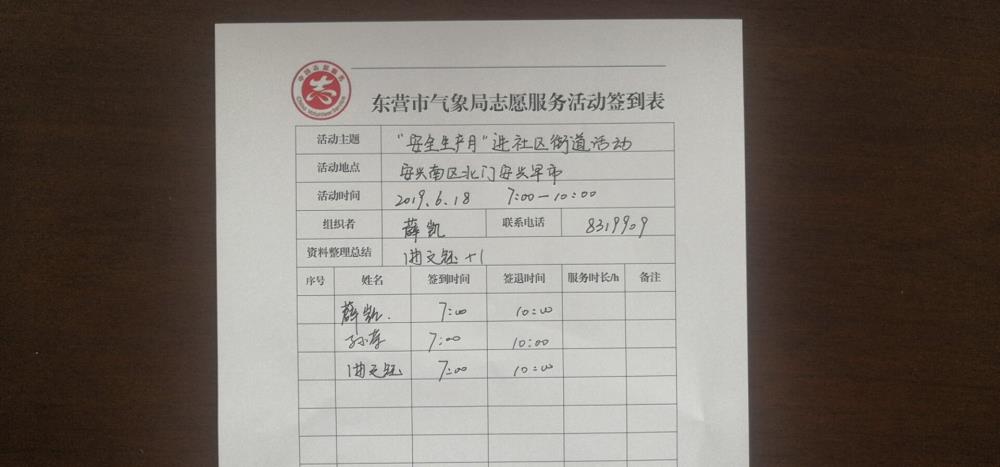 中国志愿服务
China Volunteer Service
东营市气象局志愿服务活动签到表
活动主题 "安全生产月"进社区街道活动
活动地点 安兴南区北门安兴早市
活动时间 2019.6.18 7:00—10:00
组织者 薛凯 联系电话 8319909
资料整理总结 曲文钰 +1
序号 姓名 签到时间 签退时间 服务时长/h 备注
薛凯. 7:00 10:00
7:00 10:00
曲文钰 7:00 10:00